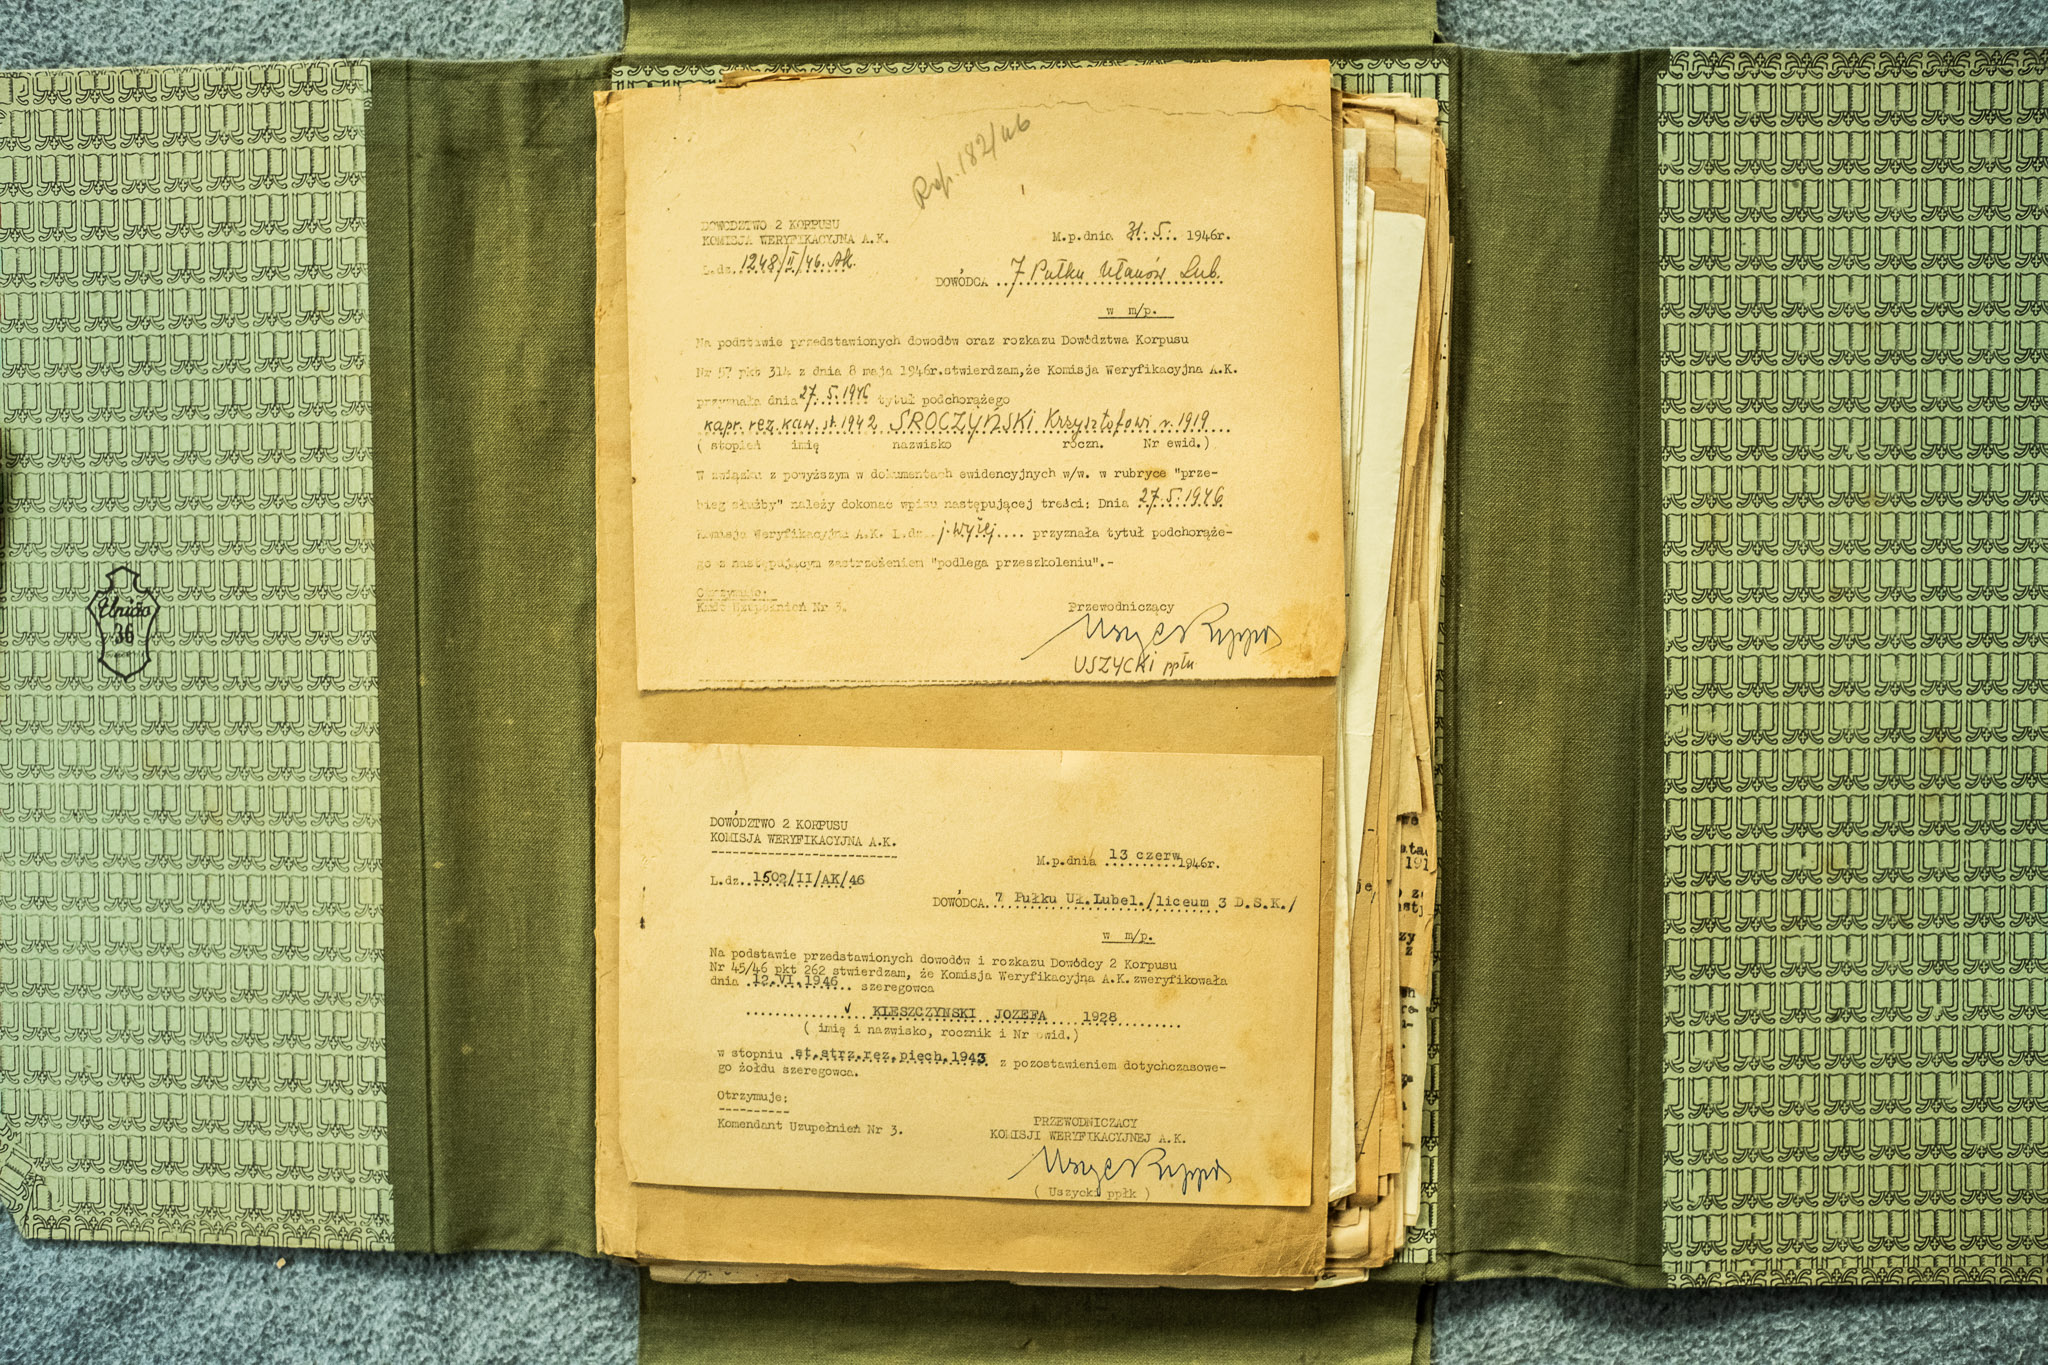 Rop. 182/46
DOWÓDZTWO 2 KORPUSU
KOMISJA WERYFIKACYJNA A.K.
M.p.dnia 31.5. 1946r.
L.dz. 1248/II/46.AK.
DOWÓDCA 7 Pułku Ułanów Lub.
w m/p.
Na podstawie przedstawionych dowodów oraz rozkazu Dowództwa Korpusu
Nr 57 pkt 314 z dnia 8 maja 1946r.stwierdzam,że Komisja Weryfikacyjna A.K.
przyznała dnia 27.5.1946 tytuł podchorążego
kapr. rez. kaw. st. 1942 SROCZYŃSKI Krzysztofowi r. 1919
( stopień imię nazwisko roczn. Nr ewid.)
W związku z powyższym w dokumentach ewidencyjnych w/w. w rubryce "prze-
bieg służby" należy dokonać wpisu następującej treści: Dnia 27.5.1946
Komisja Weryfikacyjna A.K. L.dz. j.wyżej.... przyznała tytuł podchorąże-
go z następującym zastrzeżeniem "podlega przeszkoleniu".-
Otrzymuje:
Kmdt Uzupełnień Nr 3.
Przewodniczący
USZYCKI ppłk
Unida
36
DOWÓDZTWO 2 KORPUSU
KOMISJA WERYFIKACYJNA A.K.
M.p.dnia 13 czerw 1946r.
L.dz. 1502/II/AK/46
DOWÓDCA 7 Pułku Uł.Lubel./liceum 3 D.S.K./
w m/p.
Na podstawie przedstawionych dowodów i rozkazu Dowódcy 2 Korpusu
Nr 45/46 pkt 262 stwierdzam, że Komisja Weryfikacyjna A.K.zweryfikowała
dnia 12.VI.1946 szeregowca
KLESZCZYNSKI JOZEFA 1928
( imię i nazwisko, rocznik i Nr ewid.)
w stopniu st.strz.rez.piech.1943 z pozostawieniem dotychczasowe-
go żołdu szeregowca.
Otrzymuje:
Komendant Uzupełnień Nr 3.
PRZEWODNICZĄCY
KOMISJI WERYFIKACYJNEJ A.K.
( Uszycki ppłk )